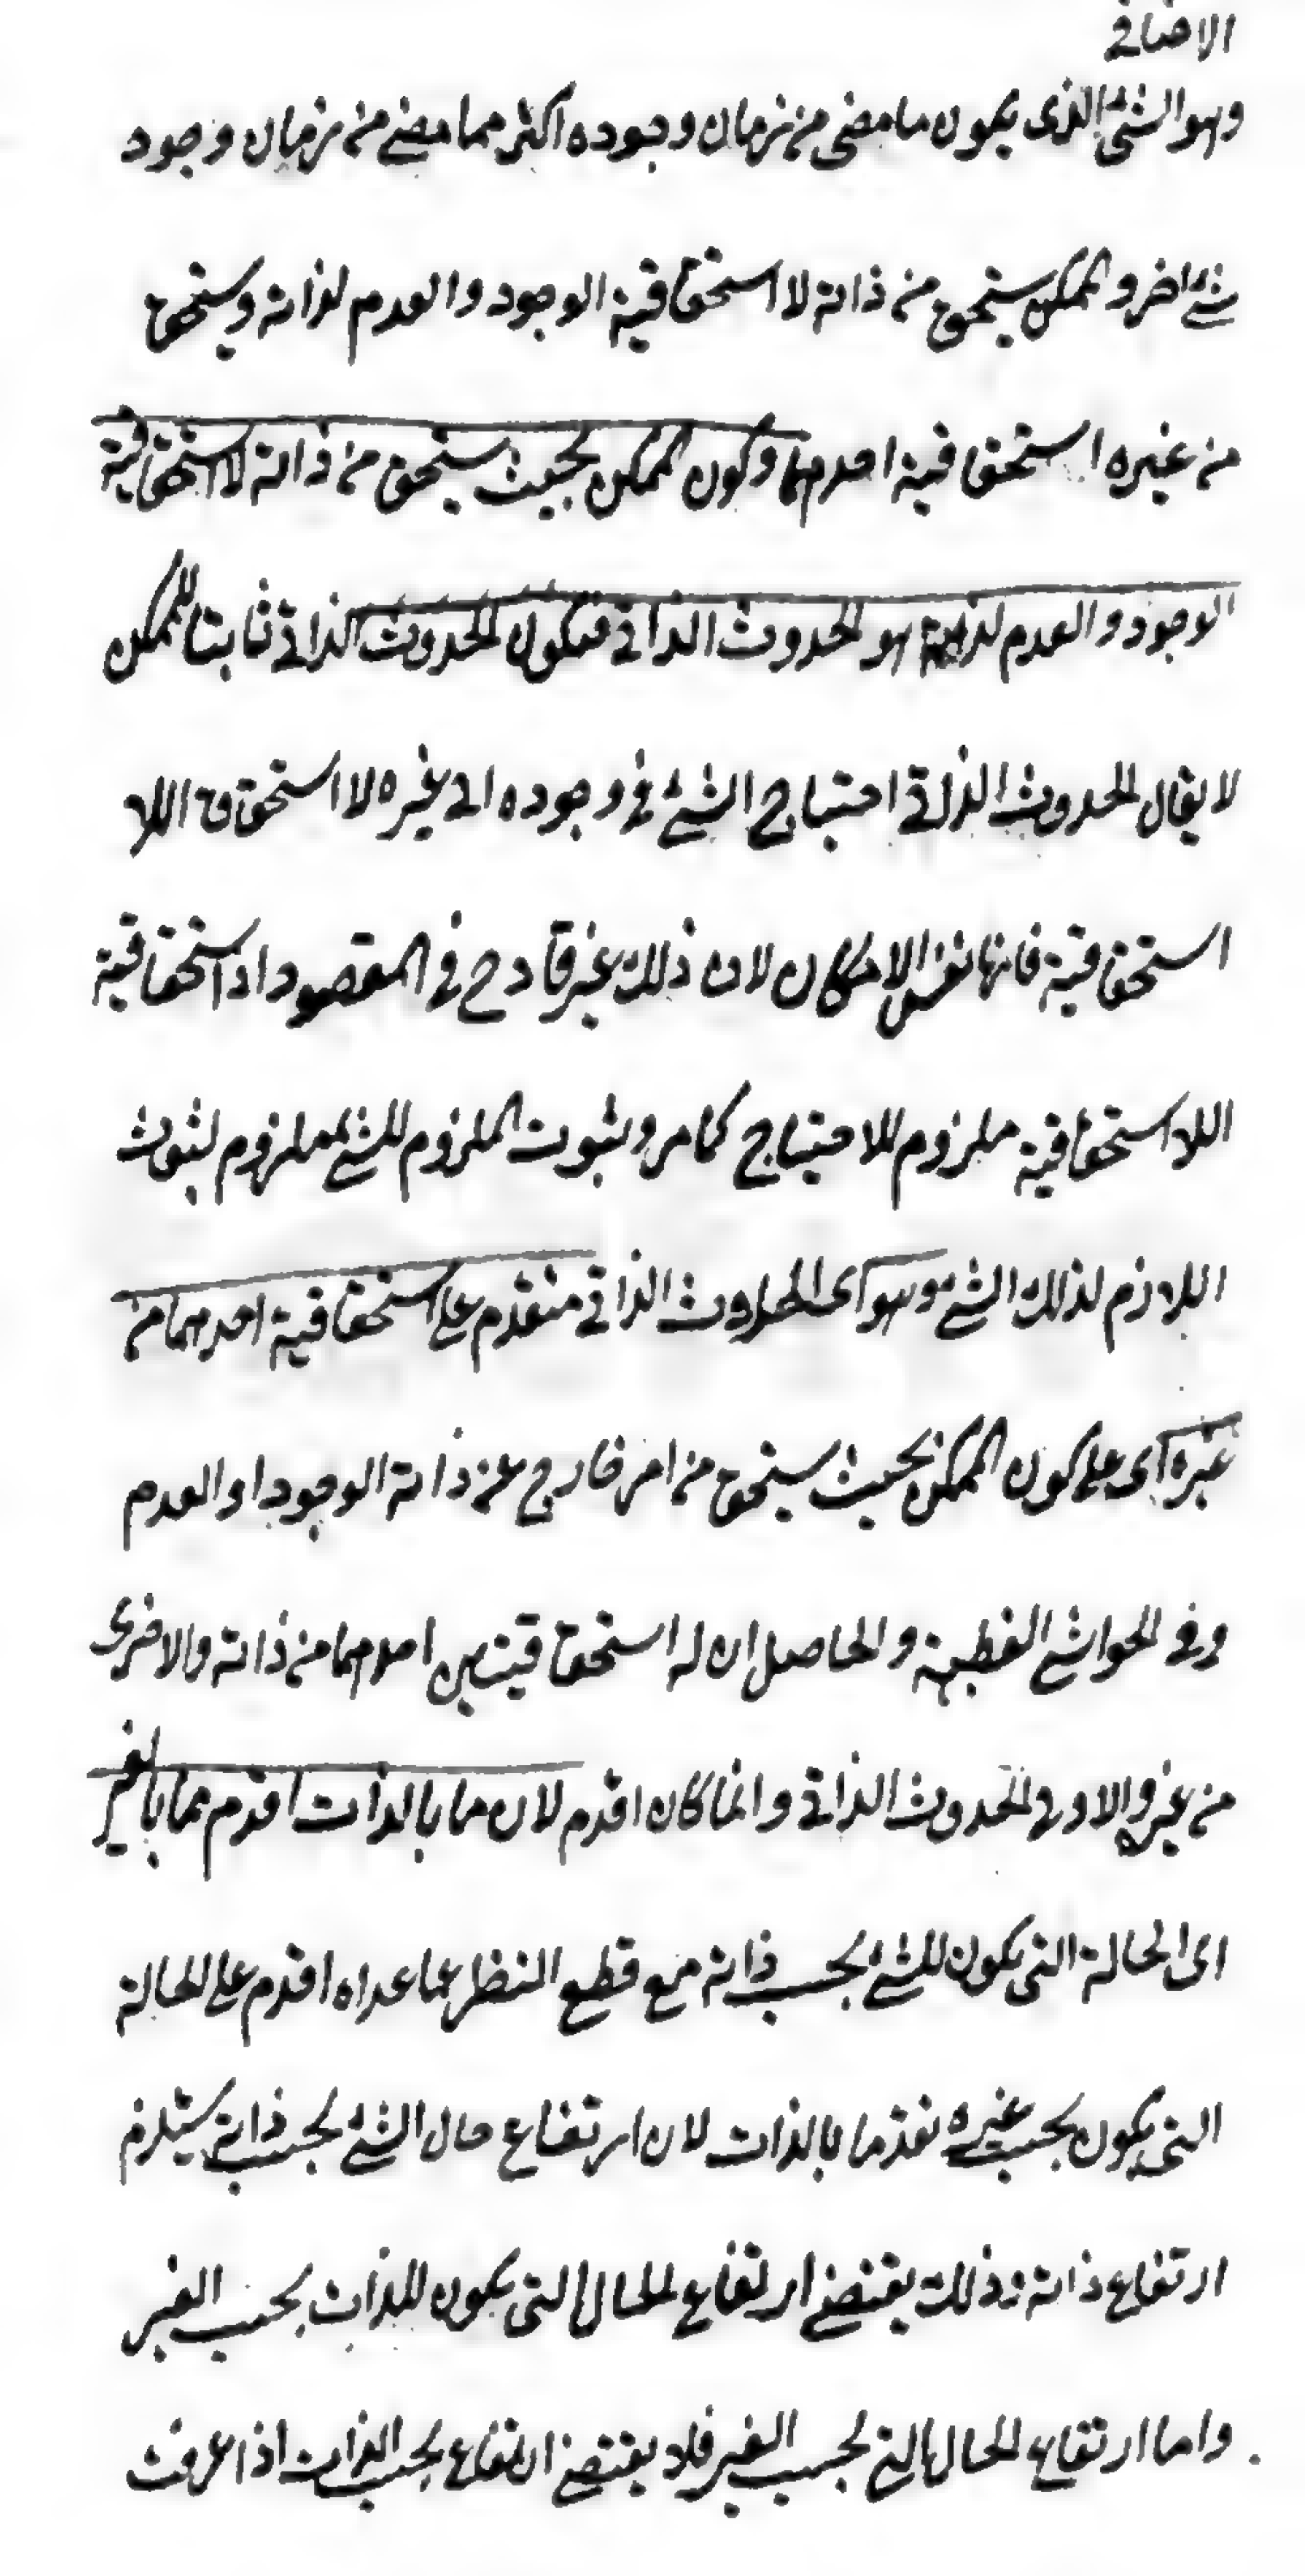 الاضافي
وهو الشئ الذى يكون ما مضى من زمان وجوده اكثر مما مضى من زمان وجود
شئ اخر والممكن يستحق من ذاته لا استحقاقية الوجود والعدم لذاته ويستحق
من غيره استحقاقية احدهما وكون الممكن بحيث يستحق من ذاته لا استحقاقية
الوجود والعدم لذاته هو الحدوث الذاتي فيكون الحدوث الذاتي ثابتا للممكن
لا يقال الحدوث الذاتي احتياج الشئ في وجوده الى غيره لا استحقاق اللا
استحقاقية فانها نفس الامكان لان ذلك غير قادح في المقصود اذ استحقاقية
اللا استحقاقية ملزوم للاحتياج كما مر وثبوت الملزوم للشئ ملزوم لثبوت
اللازم لذلك الشئ وهو اى الحدوث الذاتي متقدم على استحقاقية احدهما من
غيره اى على كون الممكن بحيث يستحق من امر خارج عن ذاته الوجود او العدم
وفي الحواشي القطبية والحاصل ان له استحقاقيتين احدهما من ذاته والاخرى
من غيره والاولى الحدوث الذاتي وانما كان اقدم لان ما بالذات اقدم مما بالغير
اى الحالة التى يكون للشئ بحسب ذاته مع قطع النظر عما عداه اقدم على الحالة
التى يكون بحسب غيره تقدما بالذات لان ارتفاع حال الشئ بحسب ذاته يستلزم
ارتفاع ذاته وذلك يقتضى ارتفاع الحال التى يكون للذات بحسب الغير
واما ارتفاع الحال التى بحسب الغير فلا يقتضى ارتفاع بحسب الذات اذا عرفت